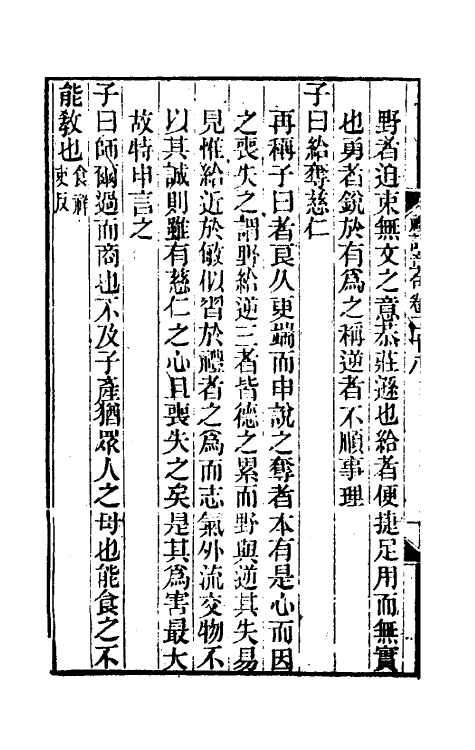 野者迫束無文之意恭莊遜也給者便捷足用而無實
也勇者銳於有為之稱逆者不順事理
子曰給奪慈仁
再稱子曰者良久更端而申說之奪者本有是心而因
之喪失之謂野給逆三者皆德之累而野與逆其失易
見惟給近於敏似習於禮者之為而志氣外流交物不
以其誠則雖有慈仁之心且喪失之矣是其為害最大
故特申言之
子曰師爾過而商也不及子產猶眾人之母也能食之不
能教也食祥吏反